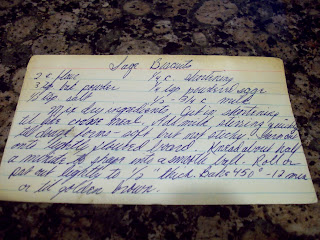 Sage Biscuits
2 c. flour 1/4 c. shortening
3 tsp bak powder 1/4 tsp powdered sage
1/2 tsp salt 2/3 - 3/4 c. milk
Mix dry ingredients. Cut in shortening
til like corn meal. Add milk stirring quickly
til dough forms - soft but not sticky. Turn out
onto lightly floured board. Knead about half
a minute to shape into a smooth ball. Roll or
pat out lightly to 1/2 " thick. Bake 450° - 12 min
or til golden brown.